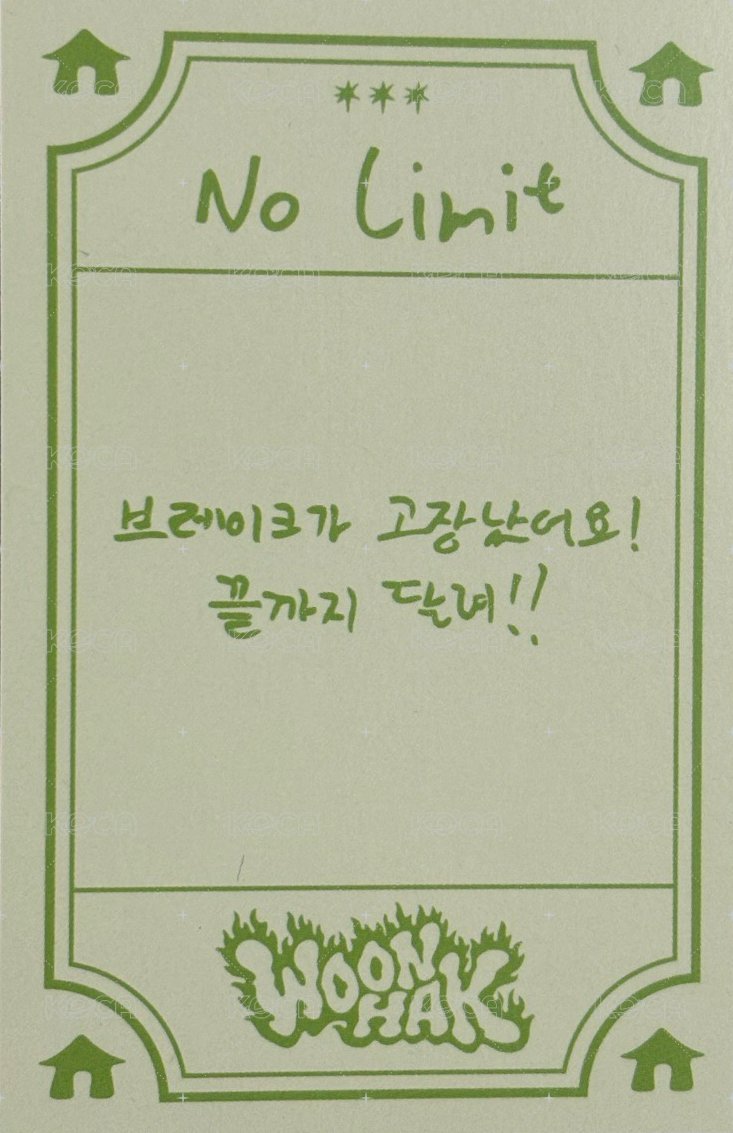 No Limit
브레이크가 고장났어요!
끝까지 달려!!
WOON
HAK
koca